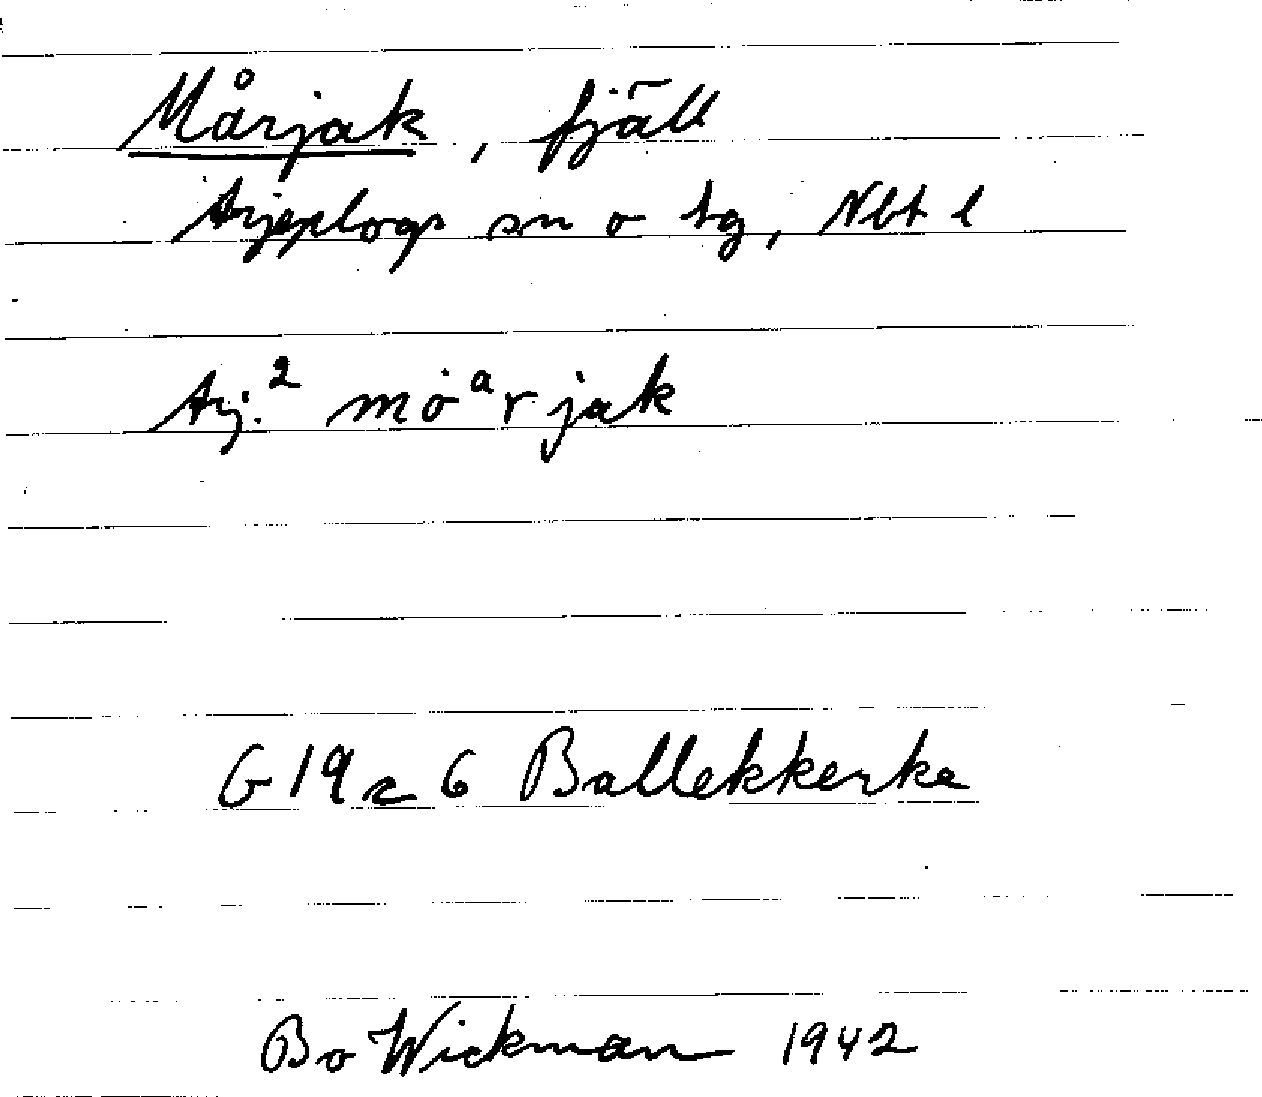 Mårjak, fjäll
Arjeplogs sn o tg, Nbt l
Arj.² mȯᵃrjak
G 19 c 6 Ballekkerke
Bo Wickman 1942